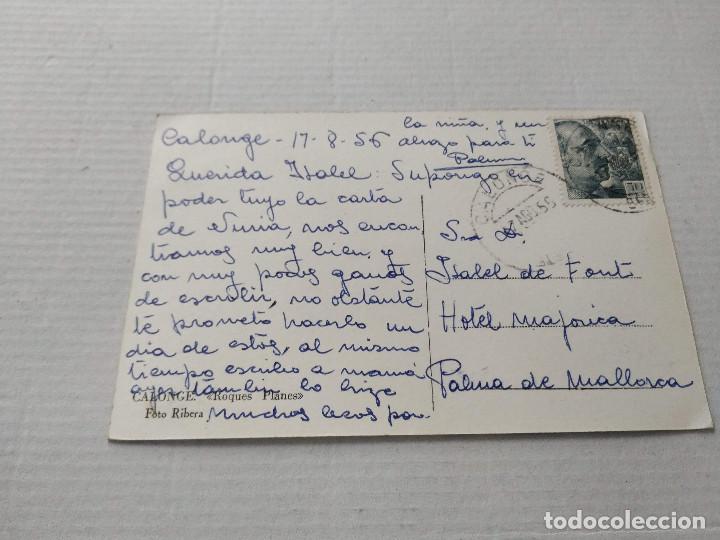 Calonge - 17-8-56
Querida Isabel: Supongo en
poder tuyo la carta
de Nuria, nos encon
tramos muy bien, y
con muy pocas ganas
de escribir, no obstante
te prometo hacerlo un
dia de estos, al mismo
tiempo escribo a mamá
ayer tambien lo hize
Muchos besos para
la niña, y un
abrazo para ti
CALONGE. «Roques Planes»
Foto Ribera
CALONGE
AGO 56
Isabel de Font
Hotel Majorica
Palma de Mallorca
todocoleccion
todocoleccion.net